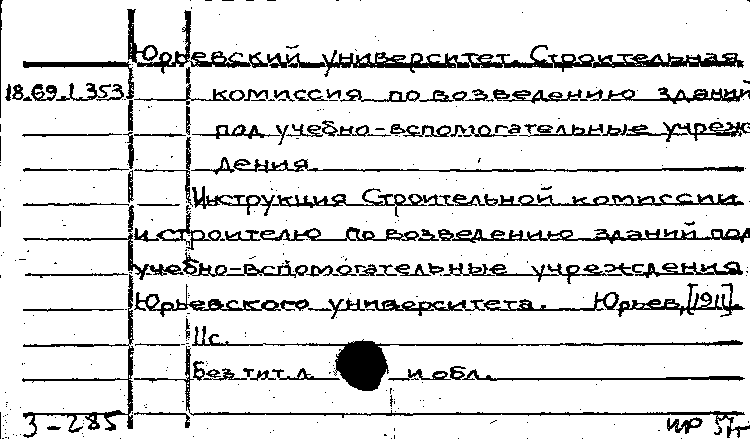 Юрьевский университет. Строительная
18.69.1.353 комиссия по возведению зданий
под учебно-вспомогательные учреж
дения.
Инструкция Строительной комиссии
и строителю по возведению зданий под
учебно-вспомогательные учреждения
Юрьевского университета. Юрьев, [1911].
11с.
Без тит. л. и обл.
3-285